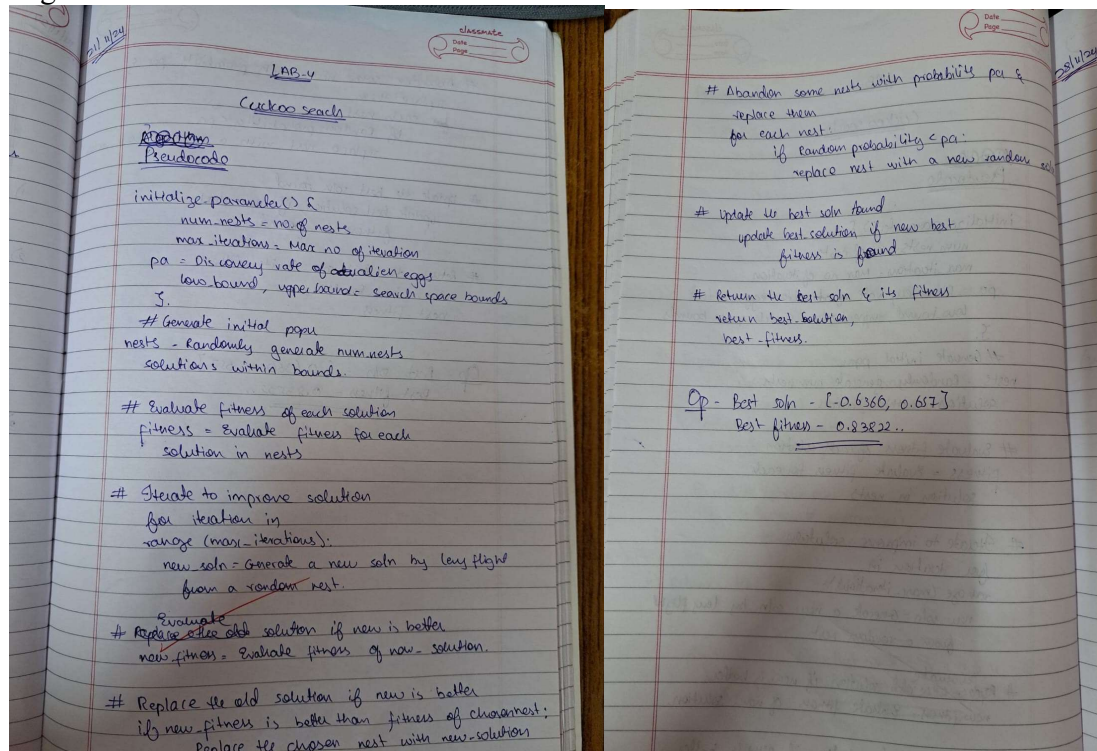 21/11/24
classmate
Date
Page
LAB-4
Cuckoo seach
Pseudocode
initialize_parameter() {
num_nests = no. of nests
max_iterations = Max no of iteration
pa = Discovery rate of alien eggs
low_bound, upper bound = search space bounds
}.
# Generate initial popu
nests - Randomly generate num_nests
solutions within bounds.
# Evaluate fitness of each solution
fitness = Evaluate fitness for each
solution in nests
# Iterate to improve solution
for iteration in
range (max_iterations):
new_soln = Generate a new soln by levy flight
from a random nest.
Evaluate
# Replace the old solution if new is better
new_fitness = Evaluate fitness of new_solution.
# Replace the old solution if new is better
if new_fitness is better than fitness of chosen nest:
Replace the chosen nest with new-solution
Date
Page
28/11/24
# Abandon some nests with probability pa &
replace them
for each nest:
if random probability < pa:
replace nest with a new random soln
# update the best soln found
update best_solution if new best
fitness is found
# Return the best soln & its fitness
return best_solution,
best-fitness.
Op - Best soln - [-0.6366, 0.657]
Best fitness - 0.83822..